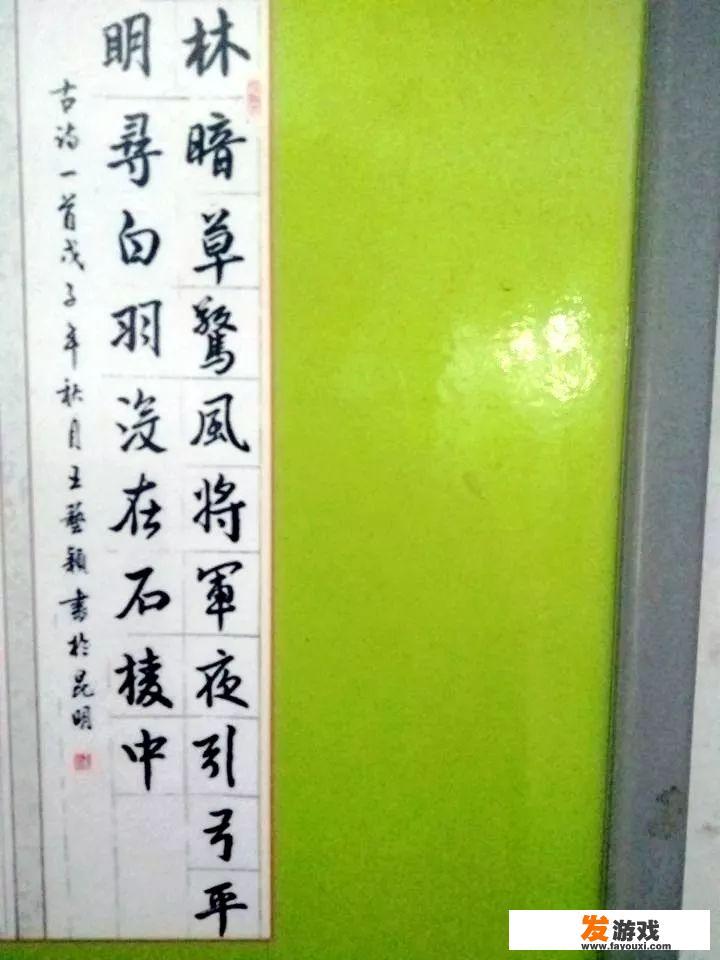 林暗草驚風將軍夜引弓平
明尋白羽没在石棱中
古诗一首戊子年秋月王藝穎書於昆明
发游戏
www.fayouxi.com